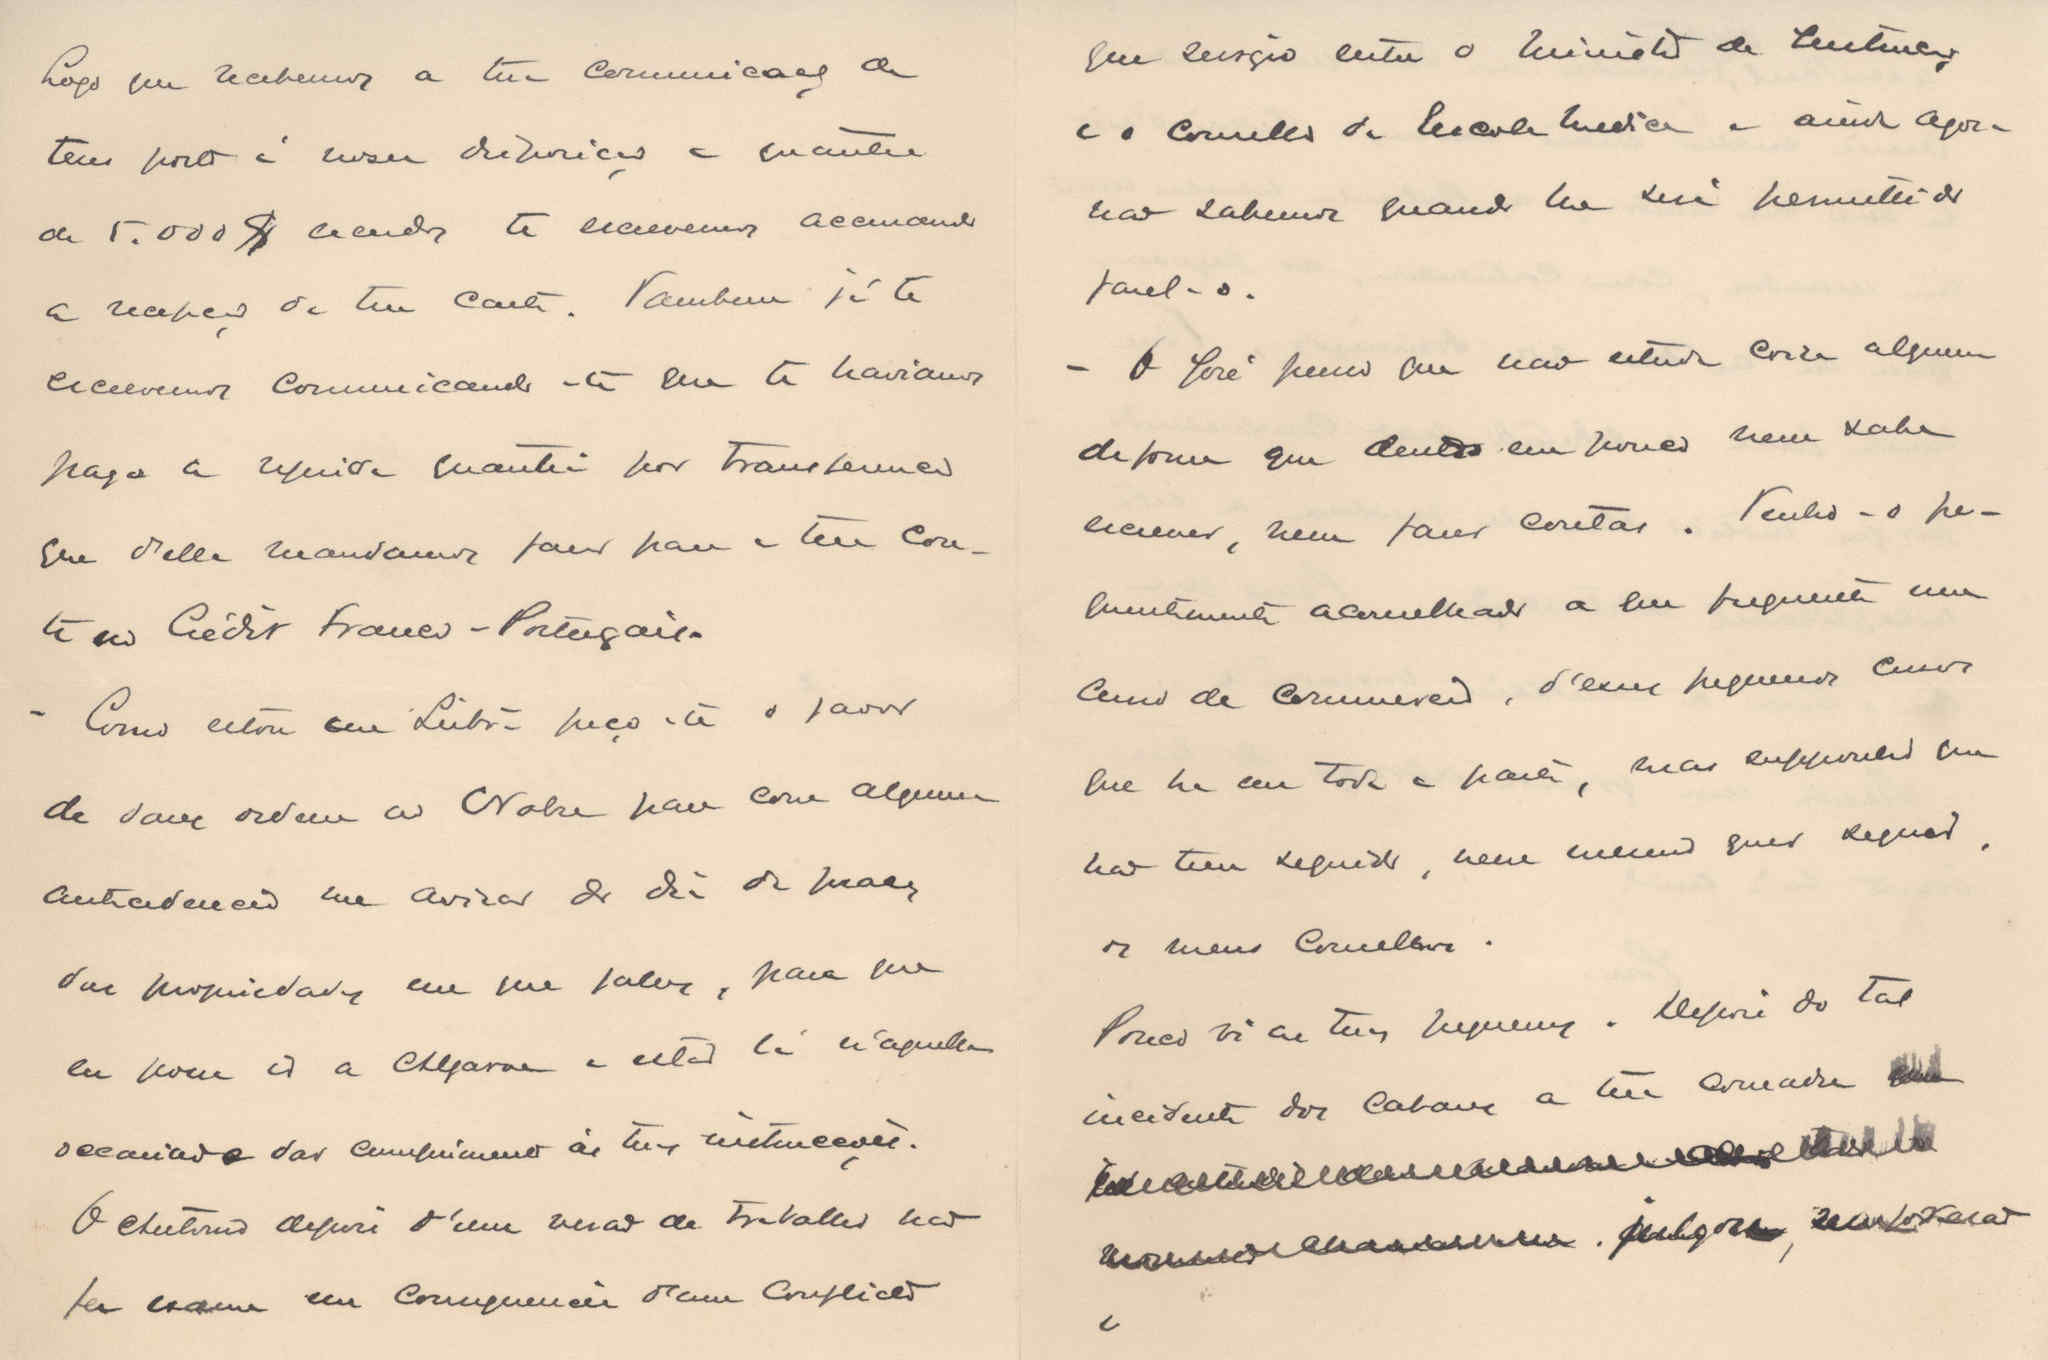 Logo que recebemos a tua communicação de
teres posto á nossa disposição a quantia
de 5.000$ escudos te escrevemos accusando
a recepção da tua carta. Tambem já te
escrevemos communicando-te que te haviamos
pago a referida quantia por transferencia
que d'ella mandamos fazer para a tua con-
ta no Crédit Franco-Portugais.
- Como estou em Lisbôa peço-te o favor
de dares ordem ao Nobre para com alguma
antecedencia me avisar do dia da praça
das propriedades em que fallas, para que
eu possa ir a Algarve e estar lá n'aquella
occasião e dar cumprimento ás tuas instrucções.
O Antonio depois d'um verão de trabalho não
fez exame em consequencia d'um conflicto
que surgio entre o Ministro da Instrucção
e o Conselho da Escola Medica e ainda agora
não sabemos quando lhe será permittido
fazel-o.
- O José penso que não estuda coisa alguma
de forma que dentro em pouco nem sabe
escrever, nem fazer contas. Tenho-o fre-
quentemente aconselhado a que frequente um
curso de commercio, d'esses pequenos cursos
que ha em toda a parte, mas supponho que
não tem seguido, nem mesmo quer seguir,
os meus conselhos.
Pouco vi as tuas pequenas. Depois do tal
incidente dos a tua comadre
julgou,
e